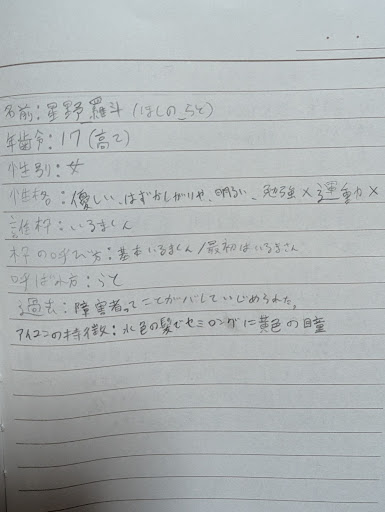 名前：星野羅斗（ほしの らと）
年齢：17（高2）
性別：女
性格：優しい、はずかしがりや、明るい、勉強×運動×
誰枠：いるまくん
枠の呼び方：基本いるまくん/最初はいるまさん
呼ばれ方：らと
過去：障害者ってことがバレていじめられた。
アイコンの特徴：水色の髪でセミロングに黄色の瞳